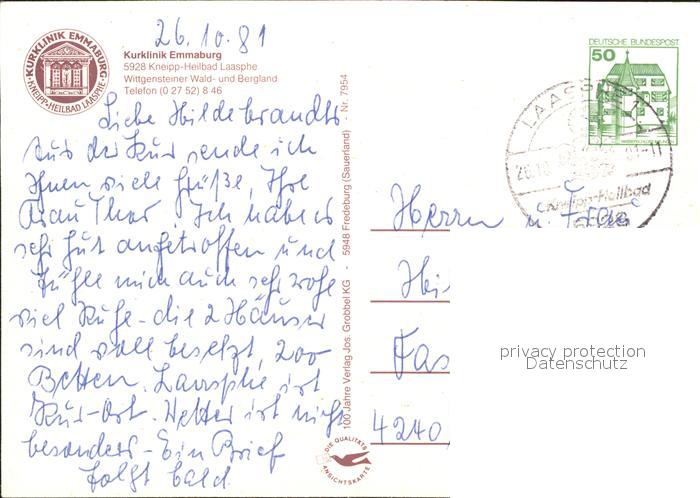 26.10.81
KURKLINIK EMMABURG
KNEIPP-HEILBAD LAASPHE
Kurklinik Emmaburg
5928 Kneipp-Heilbad Laasphe
Wittgensteiner Wald- und Bergland
Telefon (0 27 52) 8 46
Liebe Hildebrandts
Aus der Kur sende ich
Ihnen viele Grüße, Ihre
Frau Thor. Ich habe es
sehr gut angetroffen und
fühle mich auch sehr wohl
viel Ruhe - die 2 Häuser
sind voll besetzt, 200
Betten. Laasphe ist
Kur-Ort. Wetter ist nicht
besonders - Ein Brief
folgt bald
100 Jahre Verlag Jos. Grobbel KG - 5948 Fredeburg (Sauerland) - Nr. 7954
DIE QUALITÄTS
ANSICHTSKARTE
DEUTSCHE BUNDESPOST
50
LAASPHE 1
26.10.81-11
Kneipp-Heilbad
Herrn u. Frau
Hi
Fas
4240
privacy protection
Datenschutz